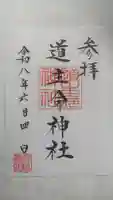 参拝
道主命神社
令和八年六月四日